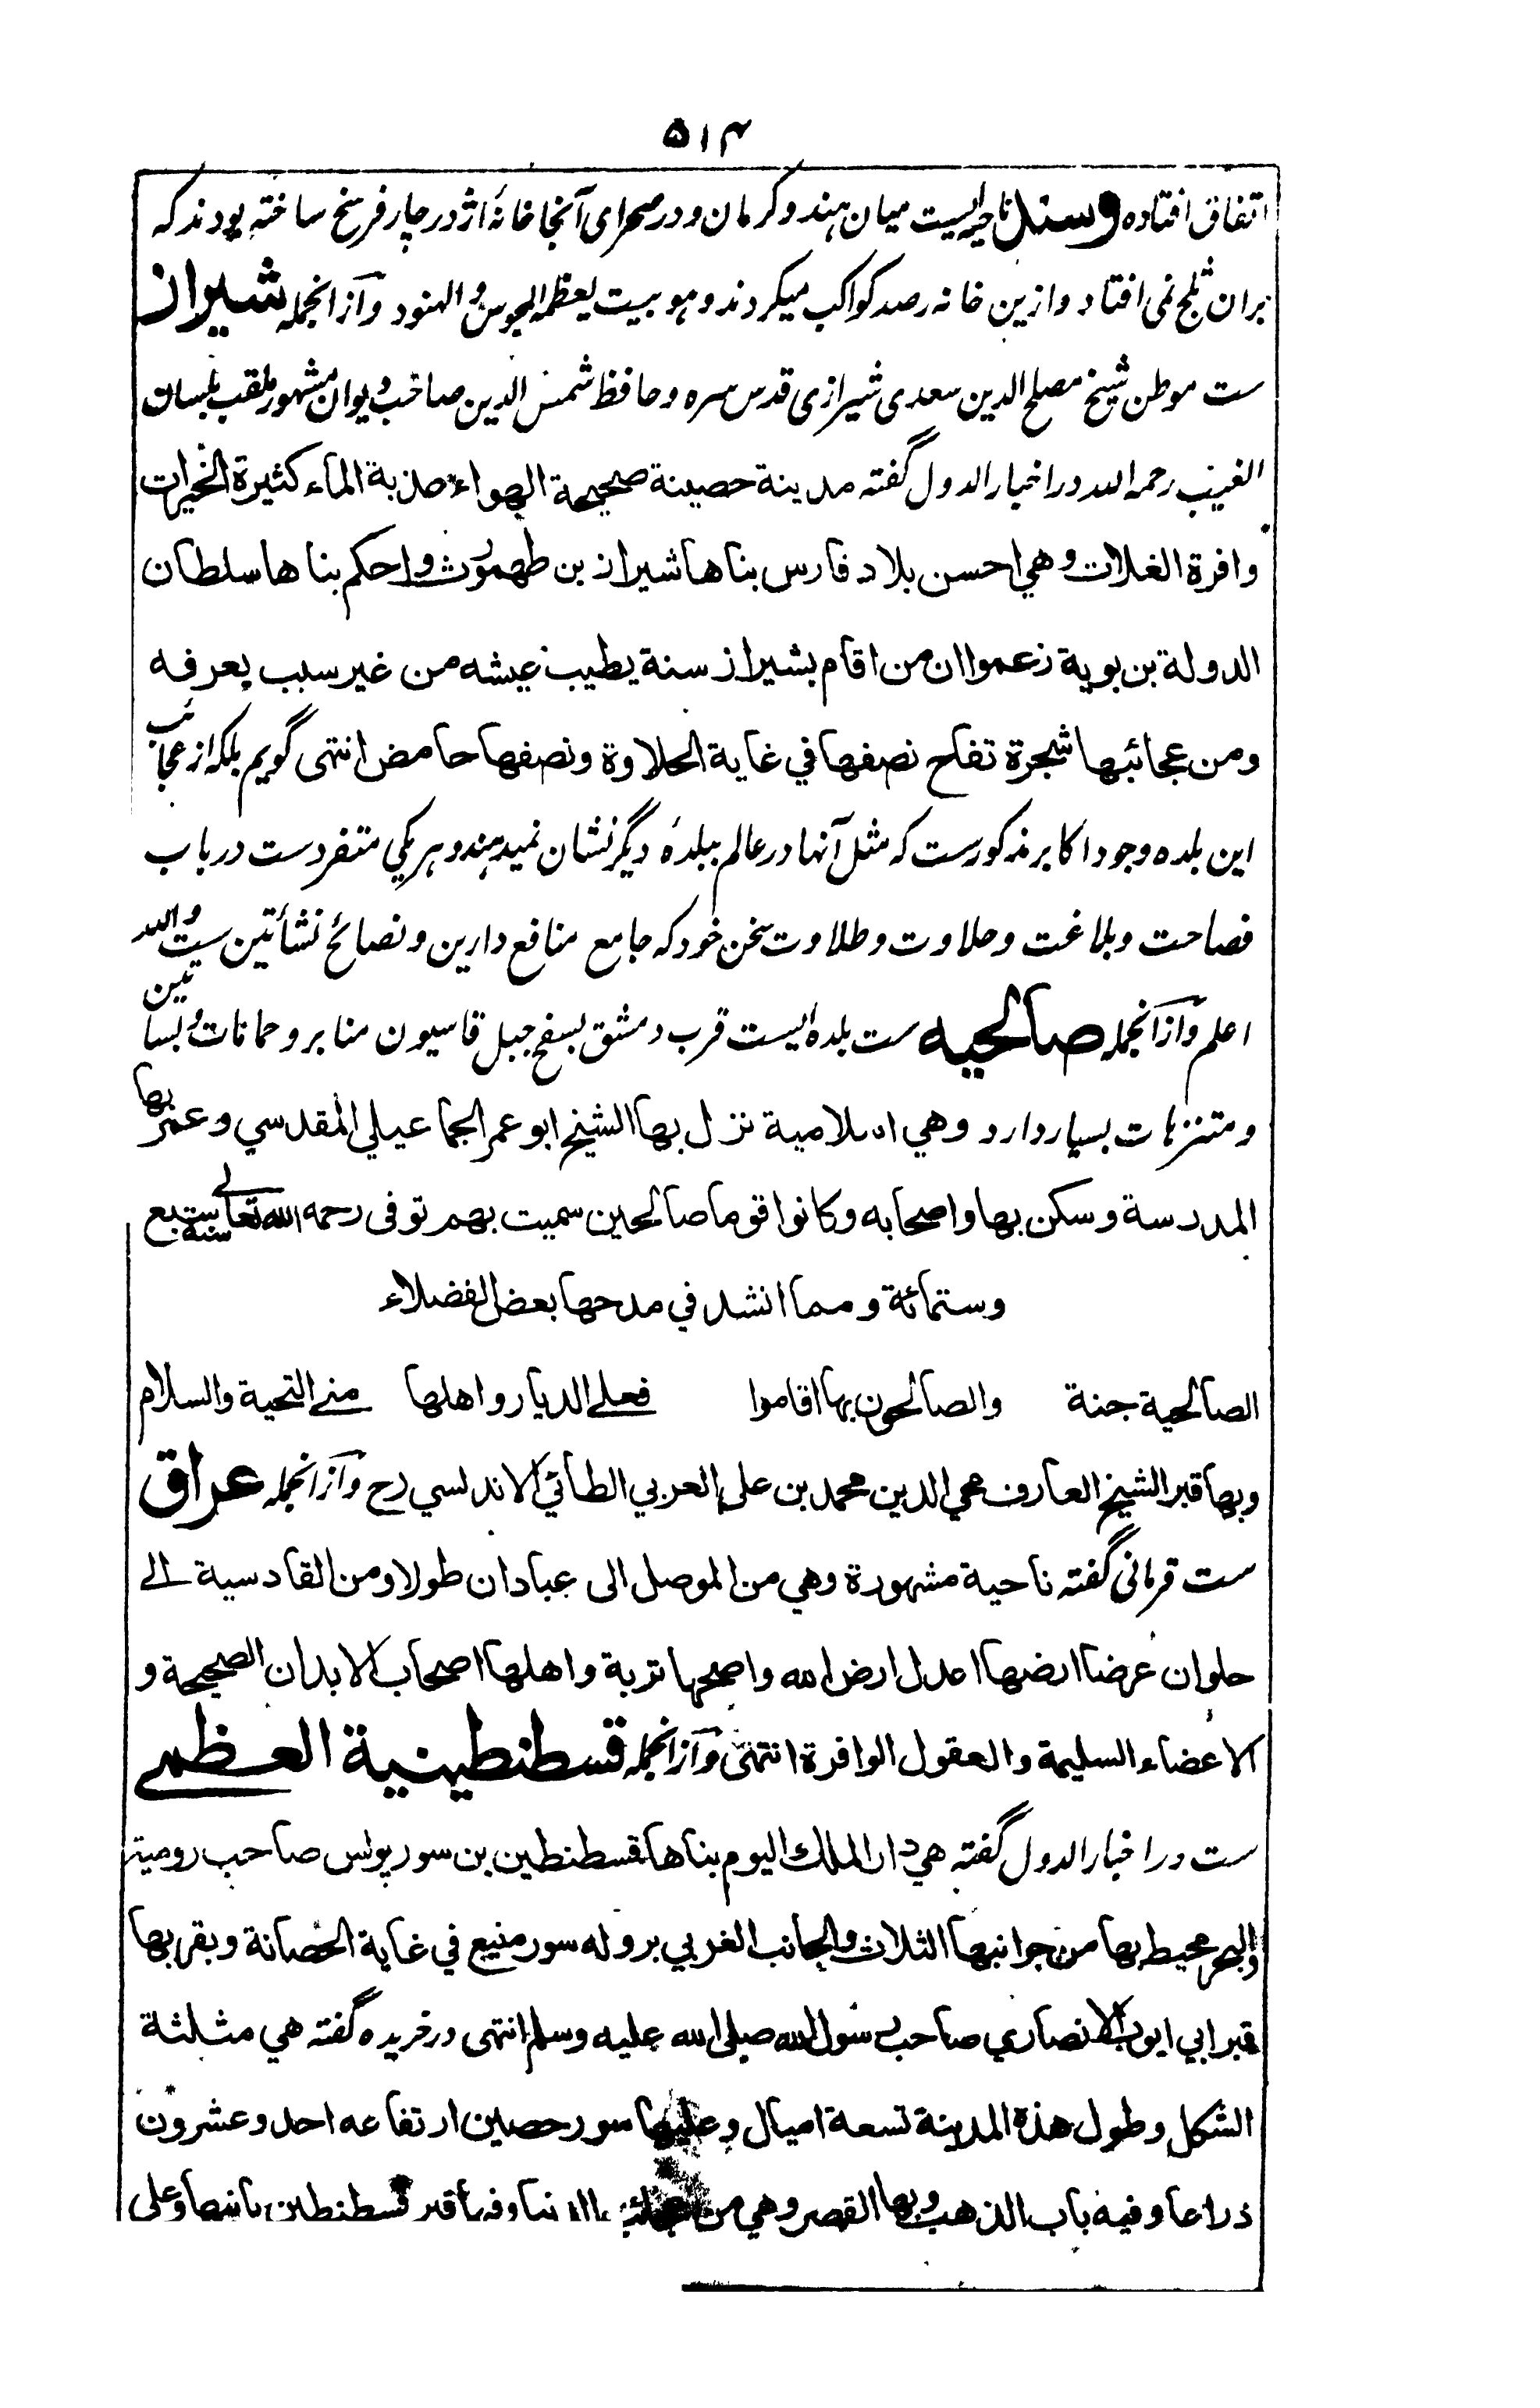 ۵۱۴
اتفاق افتاده وسند ناحیه ایست میان هند و کرمان و در صحرای آنجا خانهٔ اژدر چار فرسخ ساخته بودند که
بران ثلج نمی افتاد و ازین خانه رصد کواکب میکردند و هو بیت یعظمه المجوس و الهنود و آز انجمله شیراز
ست موطن شیخ مصلح الدین سعدی شیرازی قدس سره و حافظ شمس الدین صاحب دیوان مشهور ملقب بلسان
الغیب رحمه الله در اخبار الدول گفته مدینة حصینة صحیحة الهواء عذبة الماء کثیرة الخیرات
وافرة الغلات وهي احسن بلاد فارس بناها شیراز بن طهمورث و احکم بناها سلطان
الدولة بن بویة زعموا ان من اقام بشیراز سنة یطیب عیشه من غیر سبب یعرفه
ومن عجائبها شجرة تفاح نصفها في غایة الحلاوة ونصفها حامض انتهی گویم بلکه از عجائب
این بلده وجود اکابر مذکورست که مثل آنها در عالم ببلدهٔ دیگر نشان نمیدهند و هر یکی متفردست در باب
فصاحت و بلاغت و حلاوت و طلاوت سخن خود که جامع منافع دارین و نصائح نشأتین ست والله
اعلم و آز انجمله صالحیه ست بلده ایست قرب دمشق بسفح جبل قاسیون منابر و حمامات و بساتین
و متنزهات بسیار دارد وهي اسلامیة نزل بها الشیخ ابو عمر الجماعیلي المقدسي و عمر بها
المدرسة وسکن بها و اصحابه وکانوا قوما صالحین سمیت بهم توفی رحمه الله تعالی سنة سبع
وستمائة ومما انشد في مدحها بعض الفضلاء
الصالحیة جنة والصالحون بها اقاموا فعلی الدیار و اهلها منی التحیة والسلام
وبها قبر الشیخ العارف محی الدین محمد بن علی العربي الطائي الاندلسي رح و آز انجمله عراق
ست قرمانی گفته ناحیة مشهورة وهي من الموصل الی عبادان طولا ومن القادسیة الی
حلوان عرضا ارضها اعدل ارض الله واصحها تربة و اهلها اصحاب الابدان الصحیحة و
الاعضاء السلیمة والعقول الوافرة انتهی و آز انجمله قسطنطینیة العظمی
ست در اخبار الدول گفته هي دار الملك الیوم بناها قسطنطین بن سورپولس صاحب رومیة
والبحر محیط بها من جوانبها الثلاث والجانب الغربي بر وله سور منیع في غایة الحصانة وبقربها
قبر ابي ایوب الانصاري صاحب رسول الله صلی الله علیه وسلم انتهی در خریده گفته هي مثلثة
الشکل وطول هذه المدینة تسعة امیال وعلیها سور حصین ارتفاعه احد وعشرون
ذراعا وفیه باب الذهب وبها القصر وهي من عجائب الدنیا وفیها قبر قسطنطین بانیها وعلی